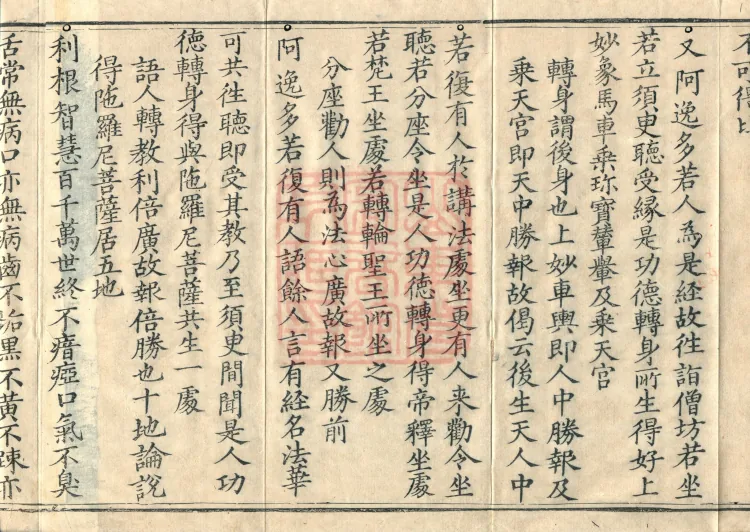 不可得比
又阿逸多若人為是経故往詣僧坊若坐
若立須臾聽受縁是功德轉身所生得好上
妙象馬車乗珎寶輦轝及乗天宫
轉身謂後身也上妙車輿即人中勝報及
乗天宫即天中勝報故偈云後生天人中
若復有人於講法處坐更有人来勸令坐
聽若分座令坐是人功德轉身得帝釋坐處
若梵王坐處若轉輪聖王所坐之處
分座勸人則為法心廣故報又勝前
阿逸多若復有人語餘人言有経名法華
可共往聽即受其教乃至須臾間聞是人功
德轉身得與陁羅尼菩薩共生一處
語人轉教利倍廣故報倍勝也十地論說
得陁羅尼菩薩居五地
利根智慧百千萬世終不瘖瘂口氣不臭
舌常無病口亦無病齒不垢黑不黄不踈亦